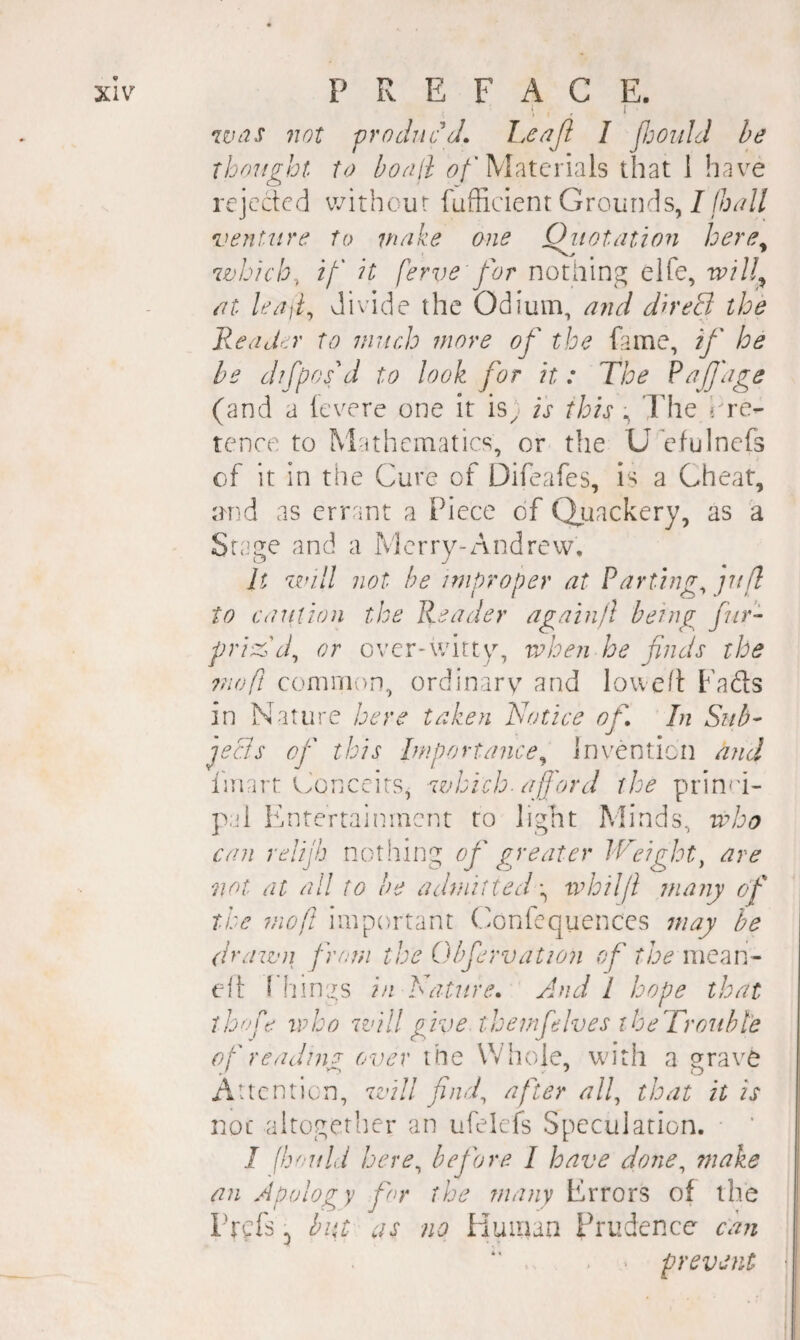 xiv PREFACE.
was not produc'd. Leaſt I ſhould be
thought to boaſt of Materials that I have
rejected without ſufficient Grounds, I ſhall
venture to make one Quotation here,
which, if it ſerve for nothing elſe, will,
at leaſt, divide the Odium, and direct the
Reader to much more of the ſame, if he
be diſpos'd to look for it: The Paſſage
(and a ſevere one it is) is this; The Pre-
tence to Mathematics, or the Uſefulneſs
of it in the Cure of Diſeaſes, is a Cheat,
and as errant a Piece of Quackery, as a
Stage and a Merry-Andrew.
It will not be improper at Parting, juſt
to caution the Reader againſt being ſur-
priz'd, or over-witty, when he finds the
moſt common, ordinary and loweſt Facts
in Nature here taken Notice of. In Sub-
jects of this Importance, Invention and
ſmart Conceits, which afford the princi-
pal Entertainment to light Minds, who
can reliſh nothing of greater Weight, are
not at all to be admitted; whilſt many of
the moſt important Conſequences may be
drawn from the Obſervation of the mean-
eſt Things in Nature. And I hope that
thoſe who will give themſelves the Trouble
of reading over the Whole, with a grave
Attention, will find, after all, that it is
not altogether an uſeleſs Speculation.
I ſhould here, before I have done, make
an Apology for the many Errors of the
Preſs; but as no Human Prudence can
prevent